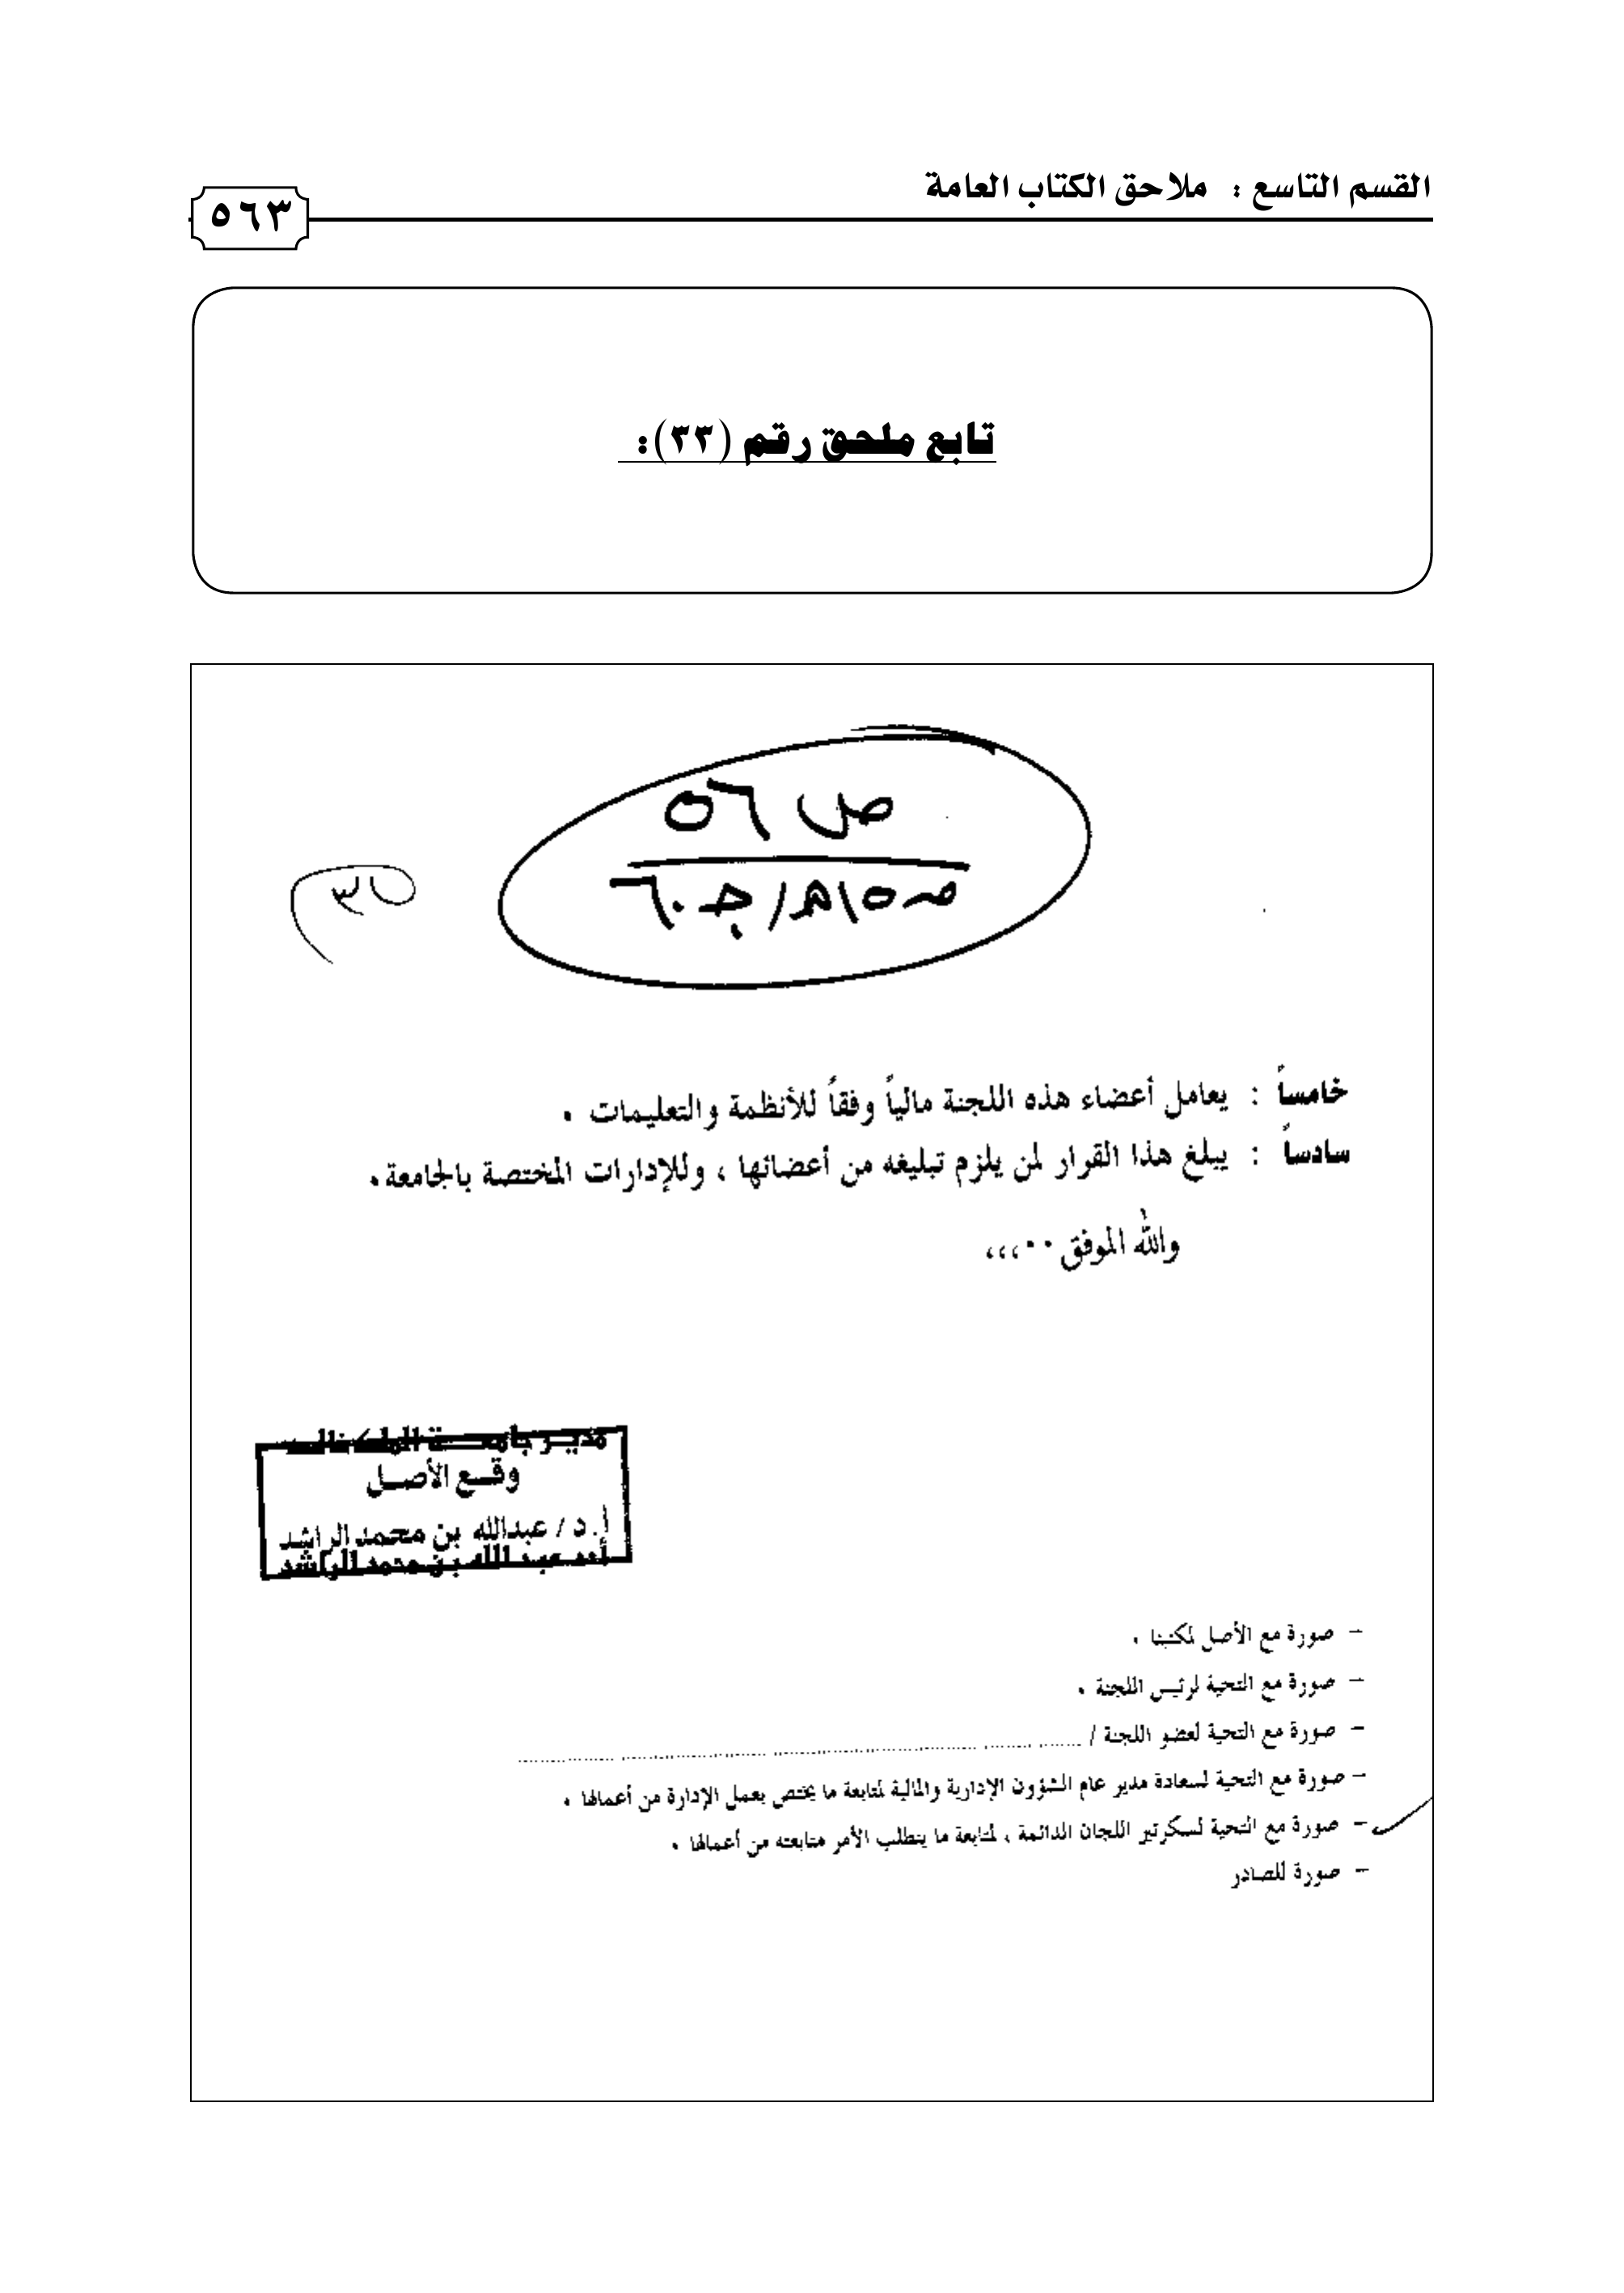 القسم التاسع : ملاحق الكتاب العامة
٥٦٣
تابع ملحق رقم (٣٣):
ص ٥٦
م ٥/هـ/ج ٦٠
خامساً : يعامل أعضاء هذه اللجنة مالياً وفقاً للأنظمة والتعليمات .
سادساً : يبلغ هذا القرار لمن يلزم تبليغه من أعضائها ، وللإدارات المختصة بالجامعة .
والله الموفق ٠٠،،،
مديـر جامعـــة الملك خالد
وقـــع الأصـــل
أ.د / عبدالله بن محمد الراشد
أ.د عبد الله بن محمد الراشد
– صورة مع الأصل لمكتبنا .
– صورة مع التحية لرئيس اللجنة .
– صورة مع التحية لعضو اللجنة /
– صورة مع التحية لسعادة مدير عام الشؤون الإدارية والمالية لمتابعة ما يختص بعمل الإدارة من أعمالها .
– صورة مع التحية لسكرتير اللجان الدائمة ، لمتابعة ما يتطلب الأمر متابعته من أعمالها .
– صورة للصادر